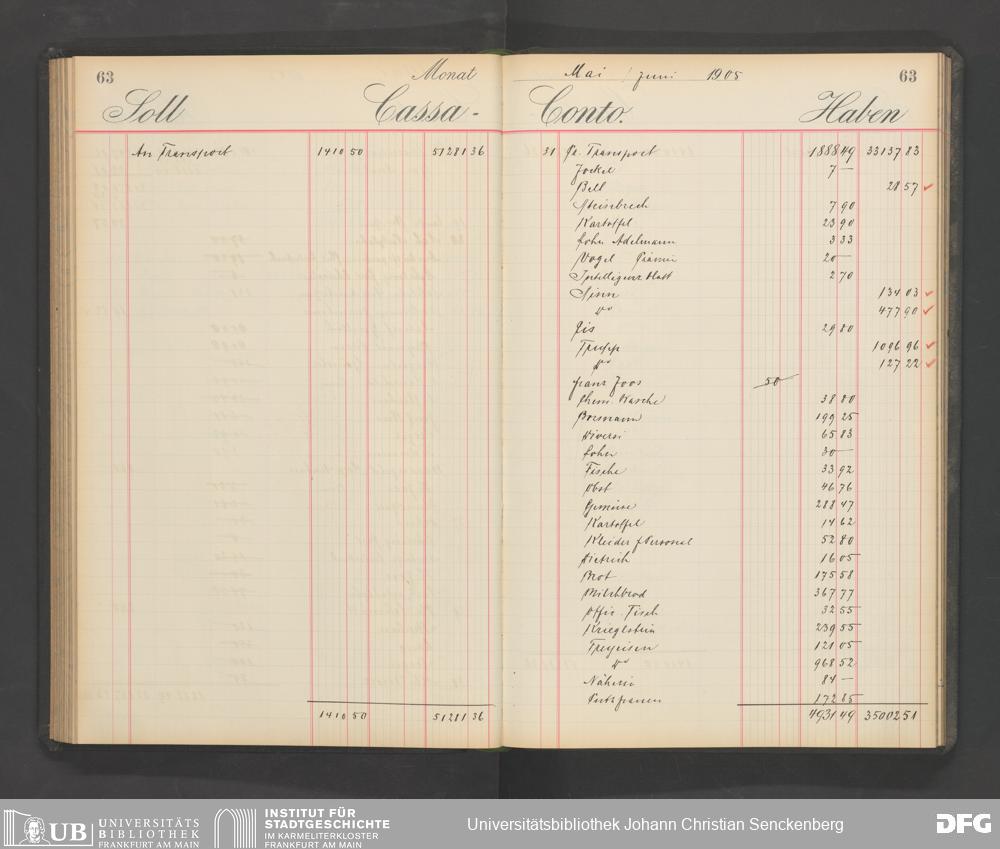 63 Monat Mai / Juni 1905 63
Soll Cassa- Conto. Haben
An Transport 1410 50 51281 36
31 Pr. Transport 1888 49 33137 83
Jockel 7 —
Bell 28 57
Steinbrech 7 90
Kartoffel 23 90
Lohn Adelmann 3 33
Vogel 20 —
Intelligenzblatt 2 70
Sinn 134 03
do 477 90
Eis 29 80
1096 96
do 127 22
Franz Joos 50
Chem. Wäsche 38 80
Bormann 199 25
Diversi 65 83
Lohn 30 —
Fische 33 92
Obst 46 76
Gemüse 288 47
Kartoffel 14 62
Kleider f Personal 52 80
Dietrich 16 05
Brot 175 58
Milchbrod 367 77
Offic. Tisch 32 55
Krieglstein 239 55
Treyeisen 121 05
do 968 52
Näherin 84 —
Putzfrauen 172 85
1410 50 51281 36
4931 49 35002 51
UB UNIVERSITÄTS
BIBLIOTHEK
FRANKFURT AM MAIN
INSTITUT FÜR
STADTGESCHICHTE
IM KARMELITERKLOSTER
FRANKFURT AM MAIN
Universitätsbibliothek Johann Christian Senckenberg
DFG